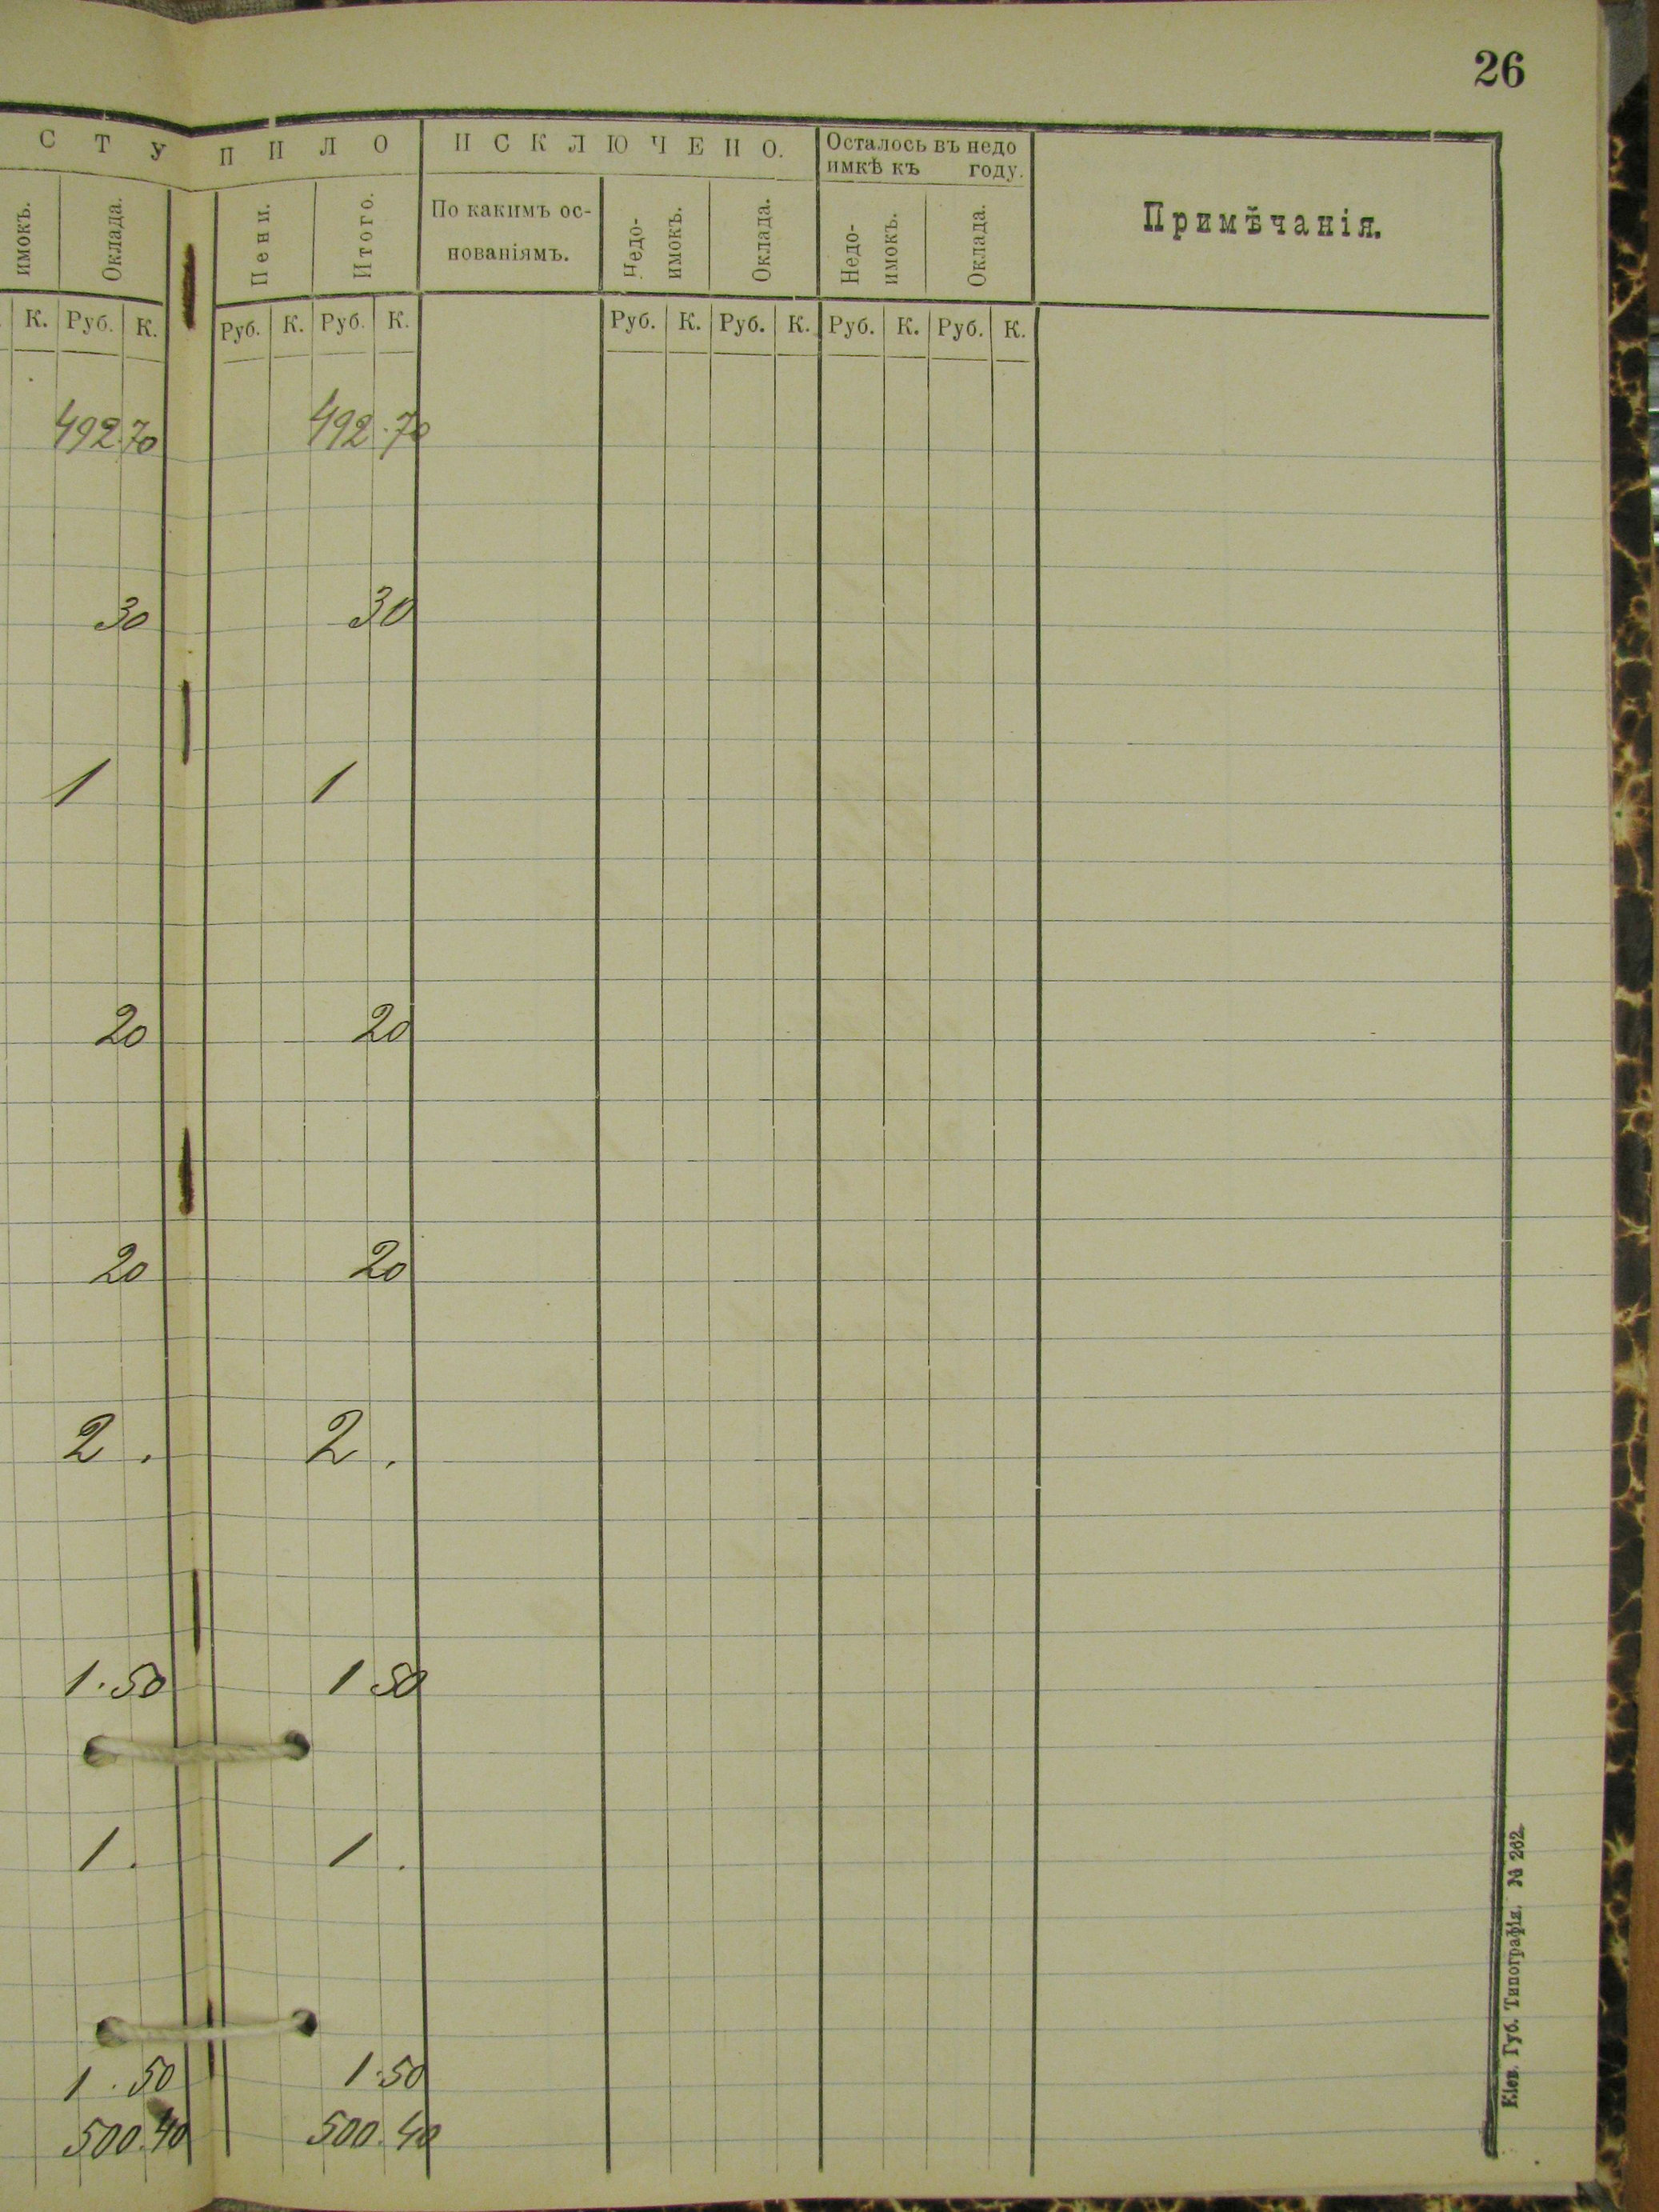 26
СТУПИЛО ИСКЛЮЧЕНО. Осталось въ недо
имкѣ къ году.
Примѣчанія.
имокъ. Оклада. Пени. Итого. По какимъ ос-
нованіямъ. Недо-
имокъ. Оклада. Недо-
имокъ. Оклада.
К. Руб. К. Руб. К. Руб. К. Руб. К. Руб. К. Руб. К. Руб. К.
492.70 492.70
30 30
1 1
20 20
20 20
2. 2.
1.50 1 50
1. 1.
1.50 1.50
500.40 500.40
Кіев. Губ. Типографія. № 262.